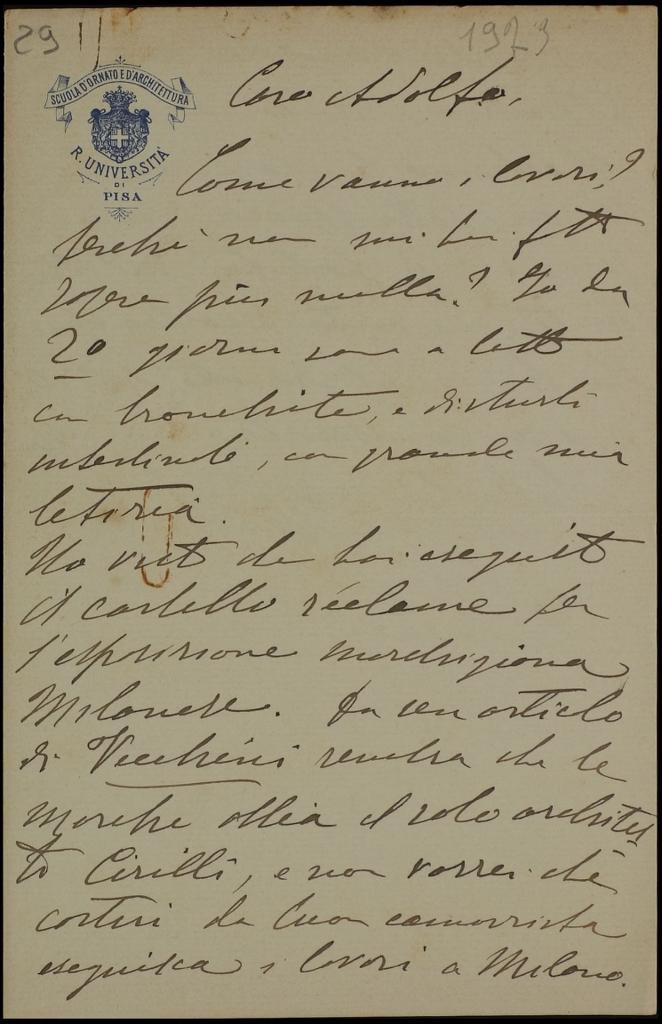 29
1923
SCUOLA D'ORNATO E D'ARCHITETTURA
R. UNIVERSITÀ
DI
PISA
Caro Adolfo,
Come vanno i lavori?
perchè non mi hai fatto
sapere più nulla? Io da
20 giorni sono a letto
con bronchite, e disturbi
intestinali, con grande mia
letizia.
Ho visto che hai eseguito
il cartello réclame per
l'esposizione marchigiana
Milanese. Da un articolo
di Vecchini sembra che le
marche abbia il solo architet
to Cirilli, e non vorrei che
costui da buon camorrista
eseguisca i lavori a Milano.